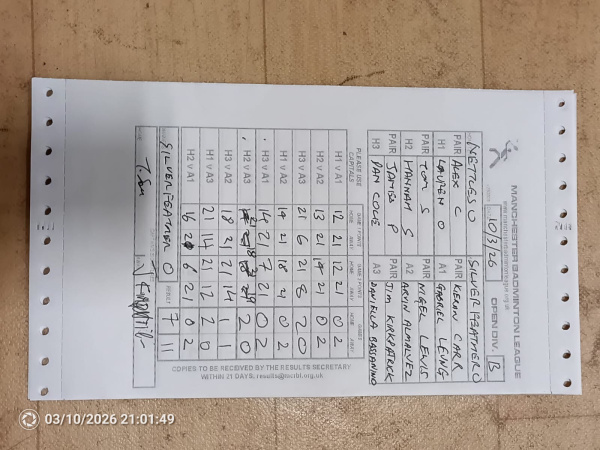 MANCHESTER BADMINTON LEAGUE
10/3/26 OPEN DIV. B
NETTLES O SILVER FEATHER O
PAIR ALEX C PAIR KIERON CARR
H1 LAUREN O A1 GABRIEL LEUNG
PAIR TOM S PAIR NIGEL LEWIS
H2 HANNAH S A2 ARVIN ALMALVEZ
PAIR JAMES P PAIR JIM KIRKPATRICK
H3 DAN COLE A3 DANIELLA BASSIANINO
PLEASE USE CAPITALS
H1 v A1 12 21 12 21 0 2
H2 v A2 13 21 14 21 0 2
H3 v A3 21 6 21 8 2 0
H1 v A2 14 21 18 21 0 2
H3 v A1 14 21 7 21 0 2
H2 v A3 2 0
H3 v A2 18 21 21 14 1 1
H1 v A3 21 14 21 12 2 0
H2 v A1 16 21 6 21 0 2
SILVER FEATHER O 7 11
COPIES TO BE RECEIVED BY THE RESULTS SECRETARY
WITHIN 21 DAYS; results@mcrbl.org.uk
03/10/2026 21:01:49